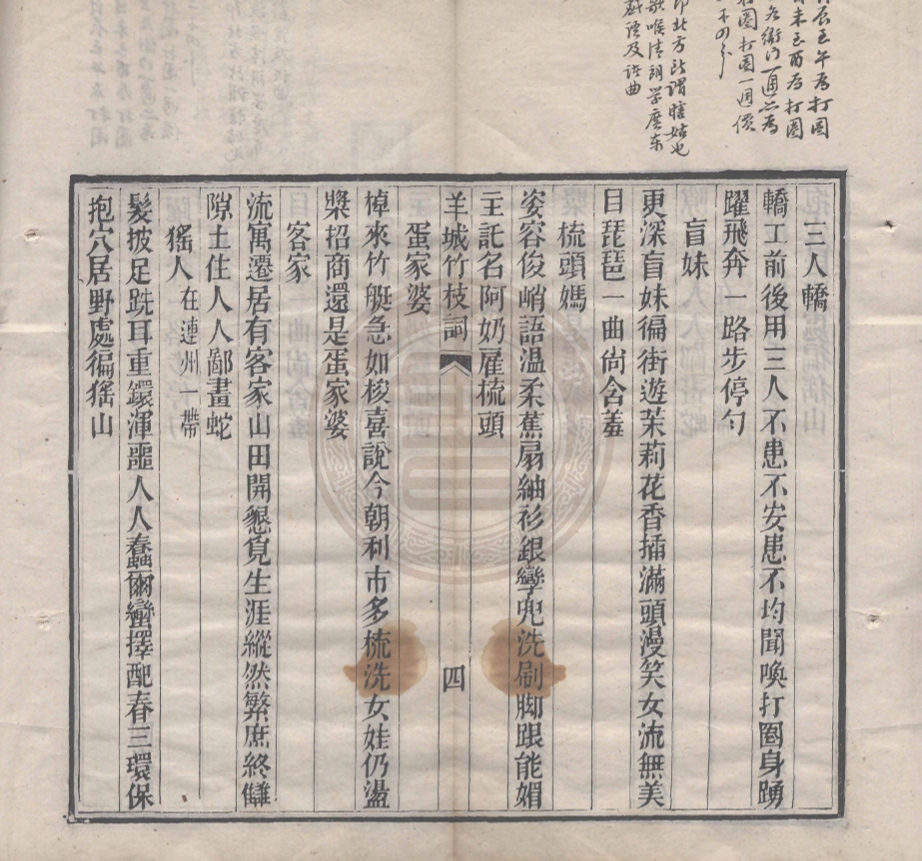 辰至午為打圈
未至酉為打圈
各衙門一通亦為
打圈一週價
不可
即北方所謂瞎姑也
歌喉清朗學廣東
戲譜及詞曲
三人轎
轎工前後用三人不患不安患不均聞喚打圈身踴
躍飛奔一路步停勻
盲妹
更深盲妹徧街遊茉莉花香插滿頭漫笑女流無美
目琵琶一曲尚含羞
梳頭媽
姿容俊峭語溫柔蕉扇紬衫銀孿兜洗刷脚跟能媚
主託名阿奶雇梳頭
羊城竹枝詞
四
蛋家婆
棹來竹艇急如梭喜說今朝利市多梳洗女娃仍盪
槳招商還是蛋家婆
客家
流寓遷居有客家山田開懇覓生涯縱然繁庶終讎
隙土住人人鄙畫蛇
猺人在連州一帶
髮披足跣耳重鐶渾噩人人蠢爾蠻擇配春三環保
抱穴居野處徧猺山